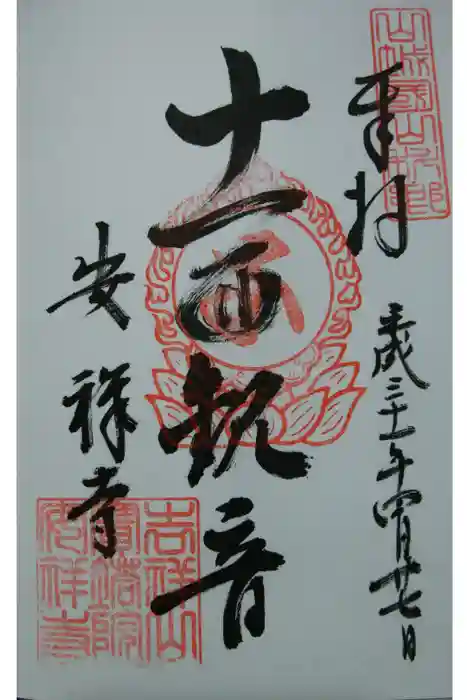 奉拝
平成三十一年四月廿七日
十一面観音
安祥寺
吉祥山
寶塔院
安祥寺